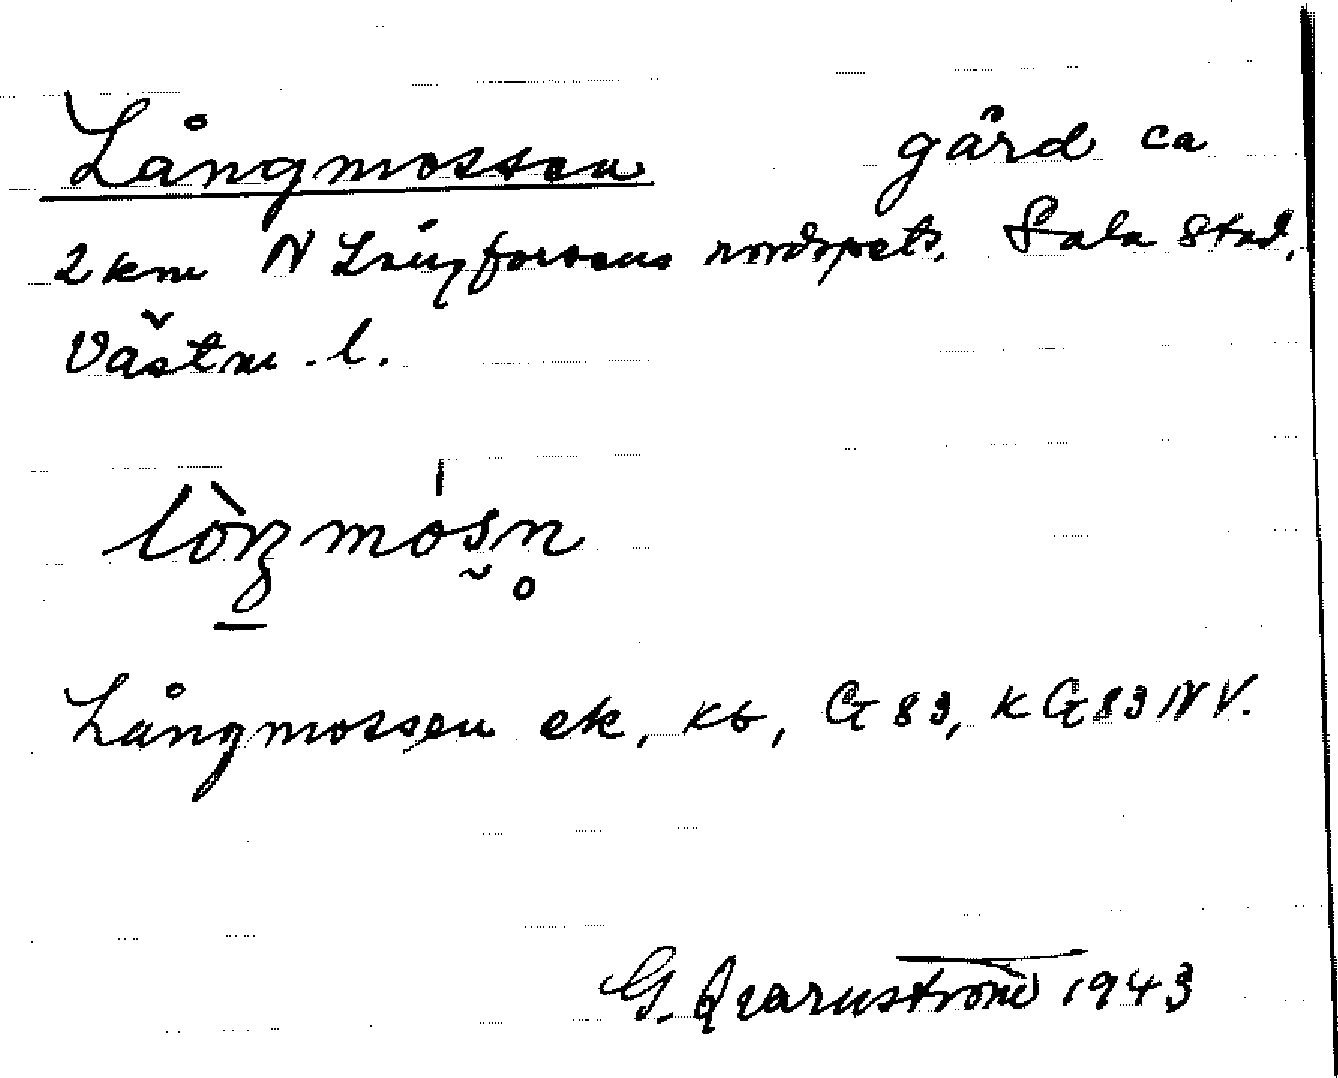 Långmossen gård ca
2 km N Långforsens nordspets. Sala stad,
Västm. l.
lòŋmósn̥
Långmossen ek, kb, G 83, k G 83 NV.
G. Qvarnström 1943